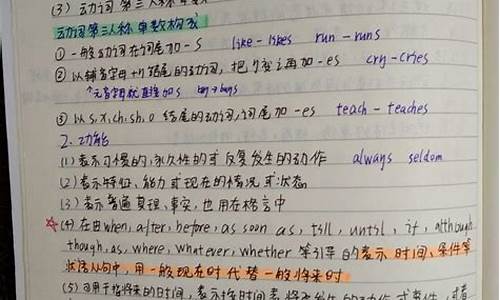 (3) 动词第三人称单数
动词第三人称单数构成
① 一般动词在词尾加-s like-likes run-runs
② 以辅音字母+y结尾的动词,把y变i再加-es cry-cries
元音字母就直接加s buy→buys
③ 以s,x,ch,sh,o结尾的动词,词尾加-es teach-teaches
2. 功能
(1) 表示习惯的,永久性的或反复发生的动作 always seldom
(2) 表示特征、能力或现在的情况或状态
(3) 表示普遍真理、事实,也用在格言中
☆(4) 在由when, after, before, as soon as, till, until, if, although
though, as, where, whatever, whether等引导的表示时间、条件等
状语从句中,用一般现在时代替一般将来时
(5) 可用于将来的时间,表示按时间表将要发生的动作或事件,或者